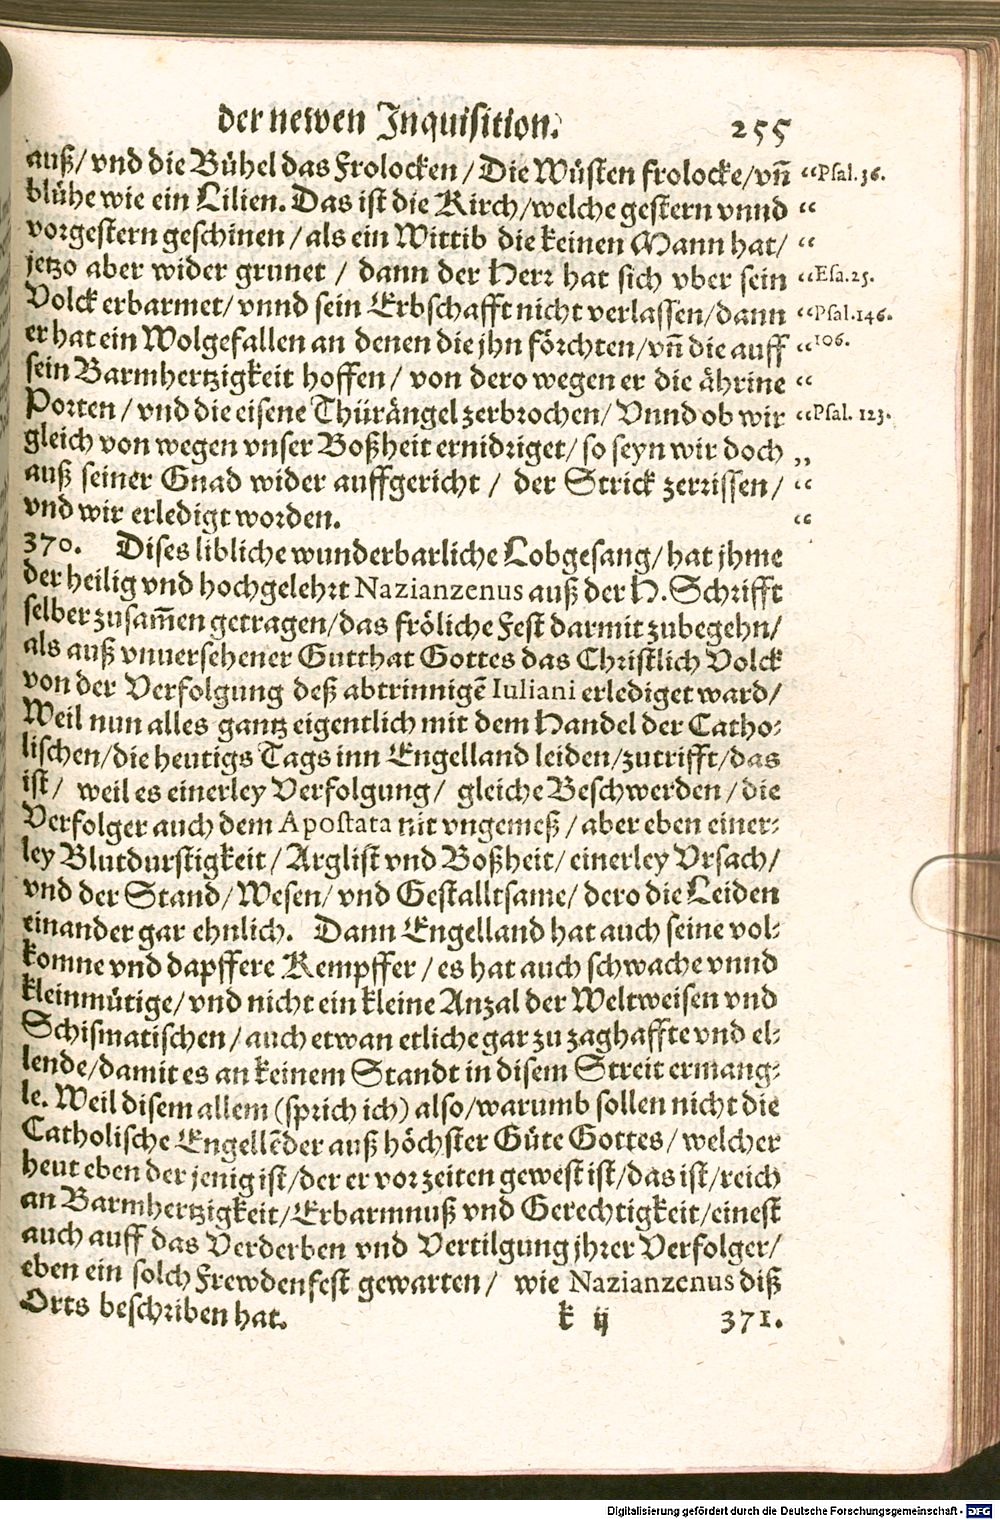 der newen Inquisition. 255
auß/ vnd die Bühel das Frolocken / Die Wüsten frolocke/vñ “Psal.36.
blühe wie ein Lilien. Das ist die Kirch/welche gestern vnnd “
vorgestern geschinen / als ein Wittib die keinen Mann hat/ “
jetzo aber wider grunet / dann der Herr hat sich vber sein “Esa.25.
Volck erbarmet/ vnnd sein Erbschafft nicht verlassen/dann “Psal.146.
er hat ein Wolgefallen an denen die jhn förchten/vñ die auff “106.
sein Barmhertzigkeit hoffen / von dero wegen er die ährine “
Porten / vnd die eisene Thürängel zerbrochen/ Vnnd ob wir “Psal. 123.
gleich von wegen vnser Boßheit ernidriget/ so seyn wir doch „
auß seiner Gnad wider auffgericht / der Strick zerrissen/ “
vnd wir erledigt worden. “
370. Dises libliche wunderbarliche Lobgesang/ hat jhme
der heilig vnd hochgelehrt Nazianzenus auß der H. Schrifft
selber zusam̃en getragen/das fröliche Fest darmit zubegehn/
als auß vnuersehener Gutthat Gottes das Christlich Volck
von der Verfolgung deß abtrinnigẽ Iuliani erlediget ward/
Weil nun alles gantz eigentlich mit dem Handel der Catho⸗
lischen/die heutigs Tags inn Engelland leiden/zutrifft/das
ist/ weil es einerley Verfolgung/ gleiche Beschwerden / die
Verfolger auch dem Apostata nit vngemeß / aber eben einer⸗
ley Blutdurstigkeit / Arglist vnd Boßheit/ einerley Vrsach/
vnd der Stand/ Wesen/ vnd Gestalltsame/ dero die Leiden
einander gar ehnlich. Dann Engelland hat auch seine vol⸗
komne vnd dapffere Kempffer / es hat auch schwache vnnd
kleinmütige/ vnd nicht ein kleine Anzal der Weltweisen vnd
Schismatischen / auch etwan etliche gar zu zaghaffte vnd el⸗
lende/damit es an keinem Standt in disem Streit ermang⸗
le. Weil disem allem (sprich ich) also/warumb sollen nicht die
Catholische Engellẽder auß höchster Güte Gottes/ welcher
heut eben der jenig ist/der er vor zeiten gewest ist/das ist/reich
an Barmhertzigkeit/Erbarmnuß vnd Gerechtigkeit/einest
auch auff das Verderben vnd Vertilgung jhrer Verfolger/
eben ein solch Frewdenfest gewarten / wie Nazianzenus diß
Orts beschriben hat. k ij 371.
Digitalisierung gefördert durch die Deutsche Forschungsgemeinschaft - DFG